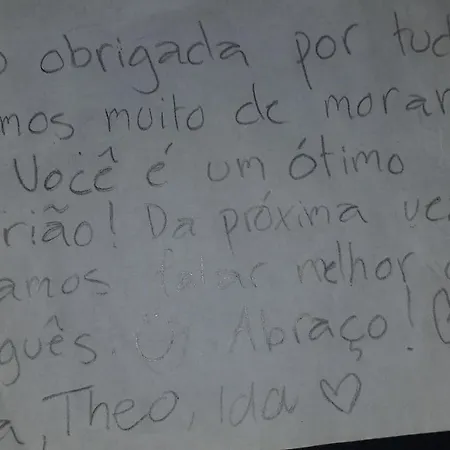 o obrigada por tud
mos muito de morar
Você é um ótimo
rião! Da próxima ve
amos falar melhor
guês. Abraço!
a, Theo, Ida ♡